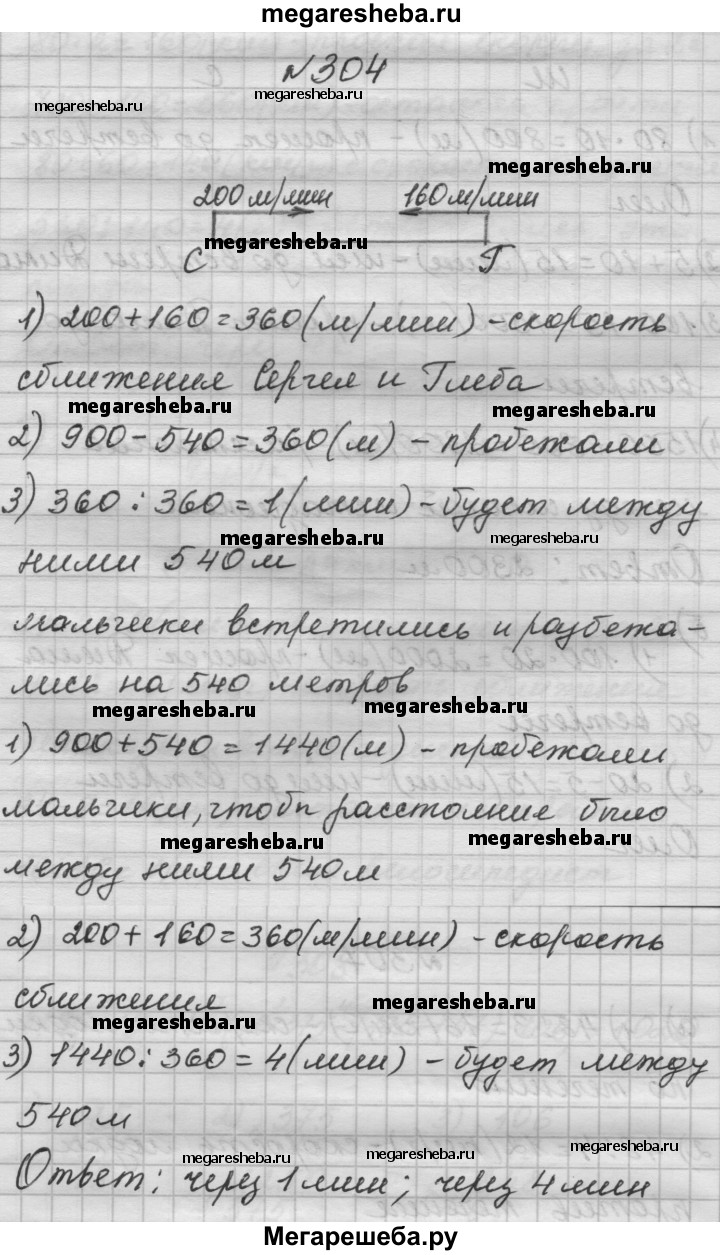 megaresheba.ru
№304
megaresheba.ru megaresheba.ru
megaresheba.ru
200м/мин 160м/мин
megaresheba.ru
С Г
1) 200+160=360(м/мин)-скорость
сближения Сергея и Глеба
megaresheba.ru megaresheba.ru
2) 900-540=360(м) - пробежали
3) 360:360=1(мин)-будет между
megaresheba.ru megaresheba.ru
ними 540м
мальчики встретились и разбежа-
лись на 540 метров
megaresheba.ru megaresheba.ru
1) 900+540=1440(м) - пробежали
мальчики, чтобы расстояние было
megaresheba.ru megaresheba.ru
между ними 540м
2) 200+160=360(м/мин) -скорость
сближения
megaresheba.ru megaresheba.ru
3) 1440:360=4(мин) -будет между
540м
megaresheba.ru megaresheba.ru megaresheba.ru
Ответ: через 1мин; через 4мин
Мегарешеба.ру